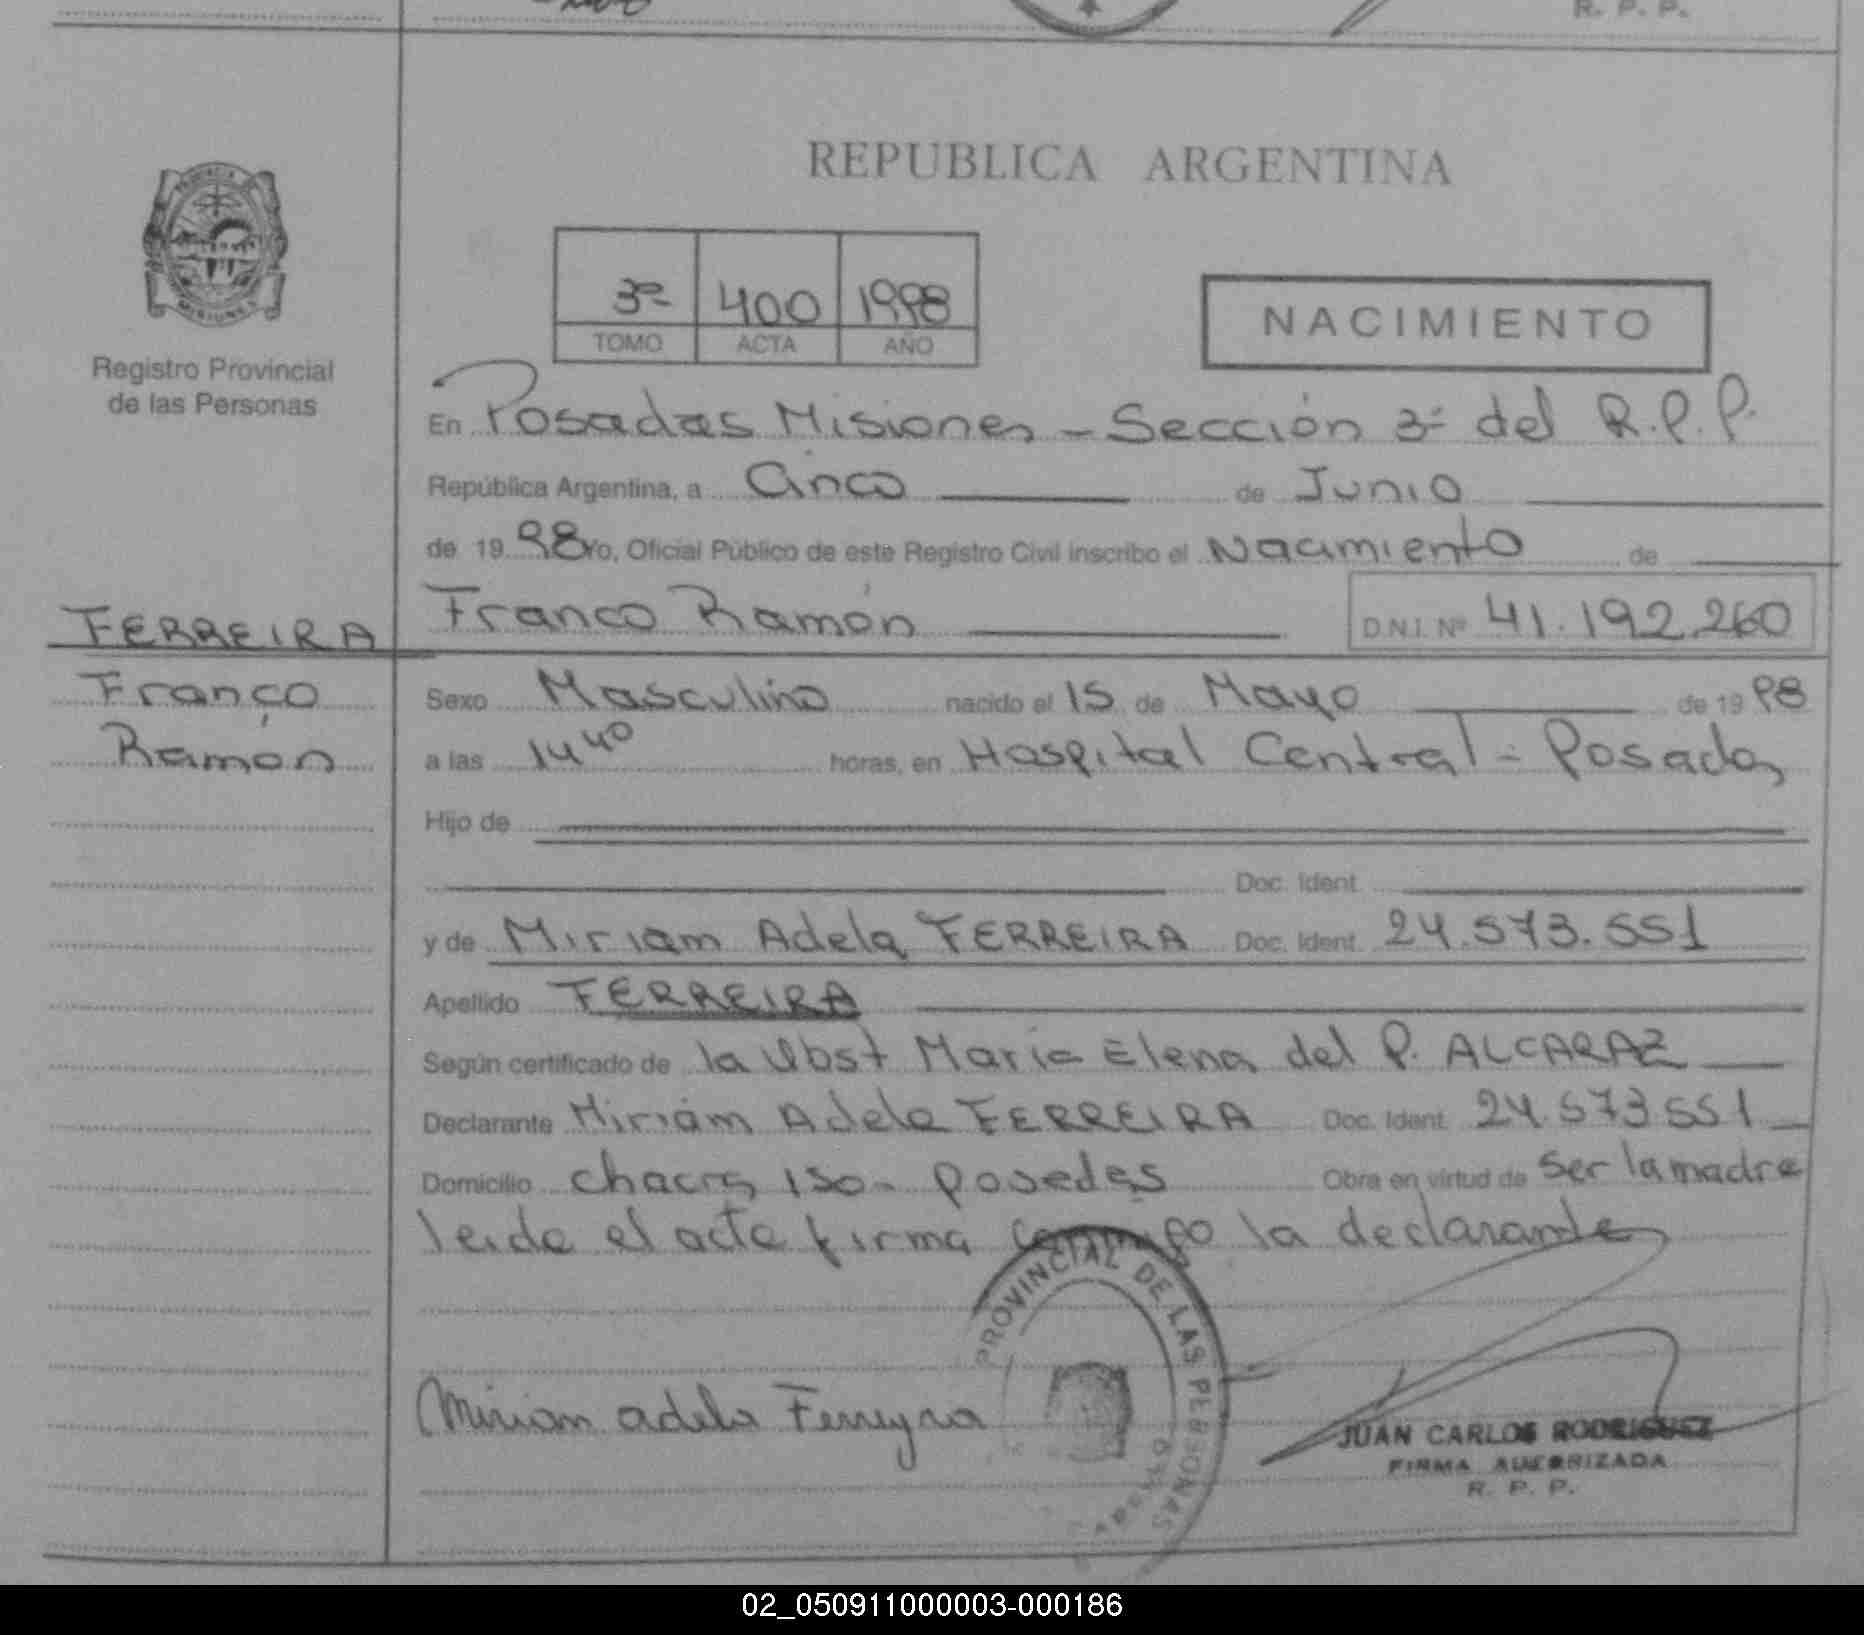 R. P. P.
REPUBLICA ARGENTINA
PROVINCIA
MISIONES
Registro Provincial
de las Personas
3º 400 1998
TOMO ACTA AÑO
NACIMIENTO
En Posadas Misiones - Sección 3ª del R.P.P.
República Argentina, a Cinco de Junio
de 19 98 Yo, Oficial Público de este Registro Civil inscribo el Nacimiento de
FERREIRA Franco Ramón D.N.I. Nº 41.192.260
Franco Sexo Masculino nacido el 15 de Mayo de 19 98
Ramón a las 14 40 horas, en Hospital Central - Posadas
Hijo de
Doc. Ident.
y de Miriam Adela FERREIRA Doc. Ident. 24.573.551
Apellido FERREIRA
Según certificado de la Obst Maria Elena del P. ALCARAZ
Declarante Miriam Adela FERREIRA Doc. Ident. 24.573.551
Domicilio chacra 150 - Posadas Obra en virtud de ser la madre
leida el acta firma conmigo la declarante
PROVINCIAL DE LAS PERSONAS
Miriam adela Ferreyra
JUAN CARLOS RODRIGUEZ
FIRMA AUTORIZADA
R. P. P.
02_050911000003-000186